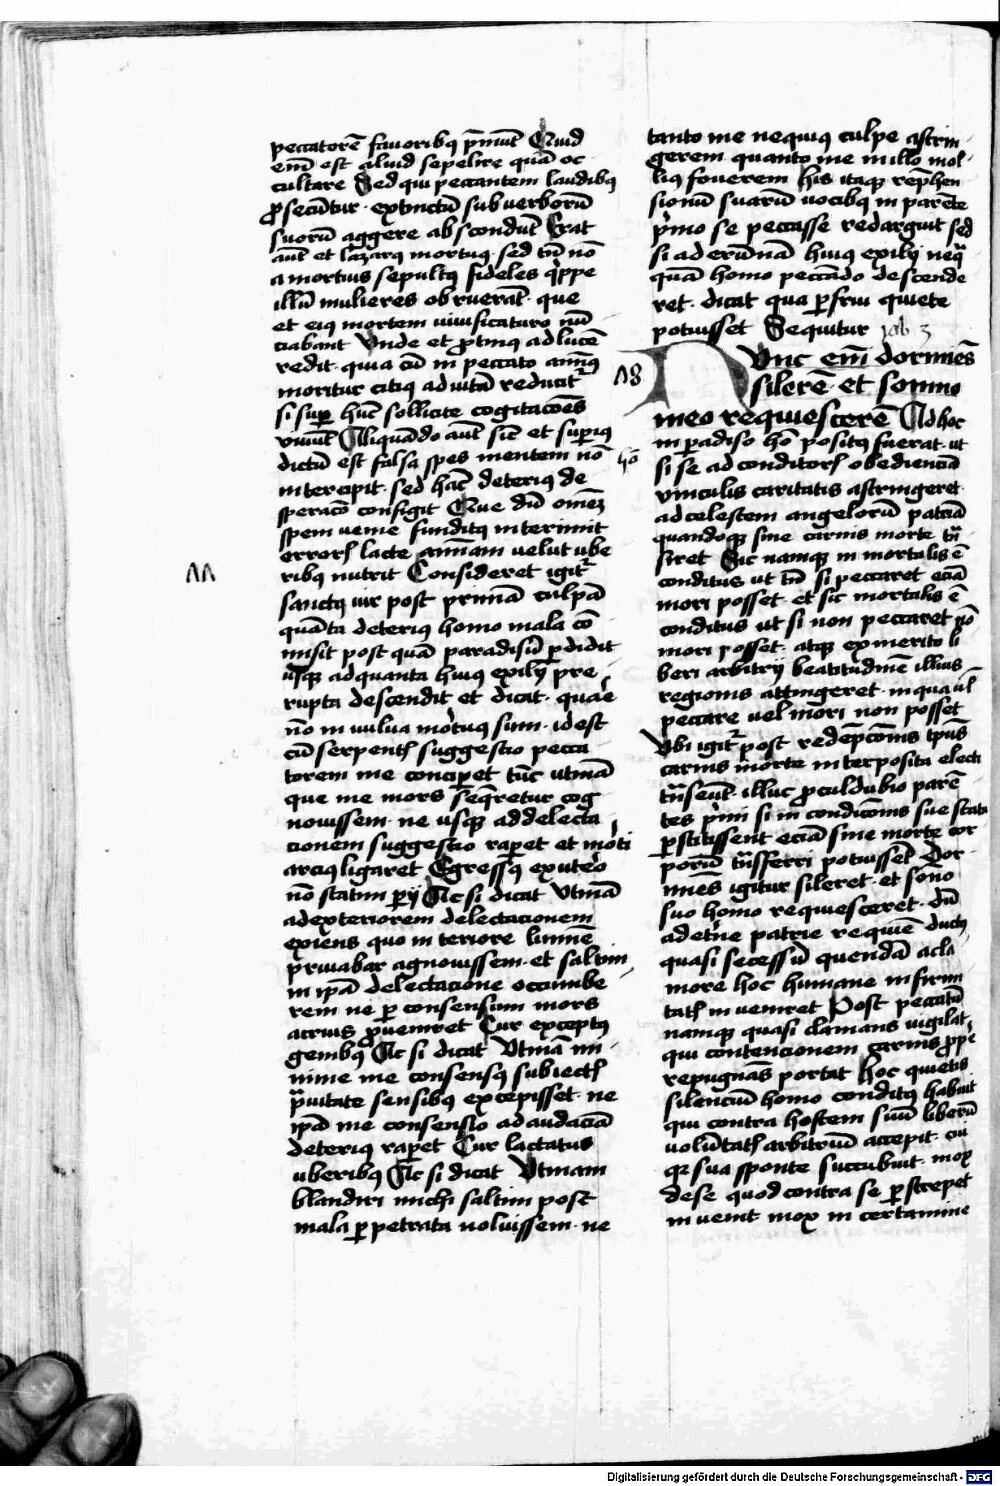 peccatorē fauoribꝰ p̄mūt Quid
em̄ est aliud sepelire quā oc-
cultare Sed qui peccantem laudibꝰ
ꝓsecūtur · extinctū sub verborū
suorū aggere abscondūt Erat
aūt et lazarus mortuꝰ sed tn̄ nō
a mortuis sepultꝰ fideles q̄ppe
illū mulieres obruerāt · que
et eiꝰ mortem viuificaturo nū-
ciabant Vnde et ꝓtinꝰ ad lucē
redit · quia cū in peccato animꝰ
moritur citiꝰ ad vitā reducit᷑
si suꝑ hūc sollicite cogitacōēs
viuūt Aliquādo aūt sic̄ et supiꝰ
dictū est falsa spes mentem nō
intercipit · sed hāc deteriꝰ de-
speracō configit Que dū omē
spem venie funditꝰ interimit
erroris lacte animam velut vbe-
ribꝰ nutrit Consideret igit᷑
11
sanctꝰ vir post primā culpā
quāta deteriꝰ homo mala cō-
misit post quā paradisū ꝑdidit
vsqꝫ ad quanta huiꝰ exilij pre-
rupta descendit et dicat · quare
nō in vulua mortuus sum · id est
cū serpentis suggestio pecca-
torem me conciperet tūc vtinā
que me mors seqretur cog-
nouissem · ne vsqꝫ ad delecta-
cionem suggestio raperet et morti
arciꝰ ligaret Egressꝰ ex vtero
nō statim perij Ac si dicat Vtinā
ad exteriorem delectacionem
exiens quo interiore lumīe
priuabar agnouissem · et saltim
in ip̄a delectacione occumbe-
rem ne ꝑ consensum mors
acrius ꝓueniret Cur exceptꝰ
genibꝰ Ac si dicat Vtinā mi-
nime me consensꝰ subiectis
prauitate sensibꝰ excepisset · ne
ip̄a me consensio ad audaciā
deteriꝰ raperet Cur lactatus
vberibꝰ Ac si dicat Vtinam
blandiri michi saltim post
mala ꝑpetrata noluissem · ne
tanto me nequiꝰ culpe astrin-
gerem quanto me in illo mol-
liꝰ fouerem his itaqꝫ rephen-
sionū suarū vocibꝰ in parēte
primo se peccasse redarguit sed
si ad erūnā huiꝰ exilij neq̄-
quā homo peccādo descende-
ret · dicat qua ꝑfrui quiete
potuisset Sequitur Job 3
18
Nvnc em̄ dormiēs
silerē · et somno
meo requiescerē Ad hoc
in paradiso hō positꝰ fuerat · vt
hō
si se ad conditoris obedienciā
vinculis caritatis astringeret
ad celestem angelorū patriā
quandoqꝫ sine carnis morte trā-
siret Sic namqꝫ inmortalis ē
conditus vt tn̄ si peccaret eciā
mori posset · et sic mortalis ē
conditus vt si non peccaret nō
mori posset · atqꝫ ex merito li-
beri arbitrij beatitudinē illius
regionis attingeret · in qua vl̄
peccare vel mori non posset
Vbi igit᷑ post redēpcōnis tp̄us
carnis morte interposita electi
trāseūt · illuc ꝓculdubio parē-
tes prīmi si in condicōnis sue statu
perstitissent eciā sine morte cor-
porū trāsferri potuissēt Dor-
miēs igitur sileret · et sōno
suo homo requiesceret · dū
ad etne patrie requiē ductꝰ
quasi secessū quendā a cla-
more hoc humane infirmi-
tatis inveniret Post peccatū
namqꝫ quasi clamans vigilat
qui contencionem carnis ꝓpe
repugnās portat Hoc quietis
silenciū homo conditꝰ habuit
qui contra hostem suū liberū
volūtatis arbitriū accepit · cui
qꝛ sua sponte succubuit · mox
de se quod contra se ꝑstrepet
invenit mox in certamine
Digitalisierung gefördert durch die Deutsche Forschungsgemeinschaft - DFG